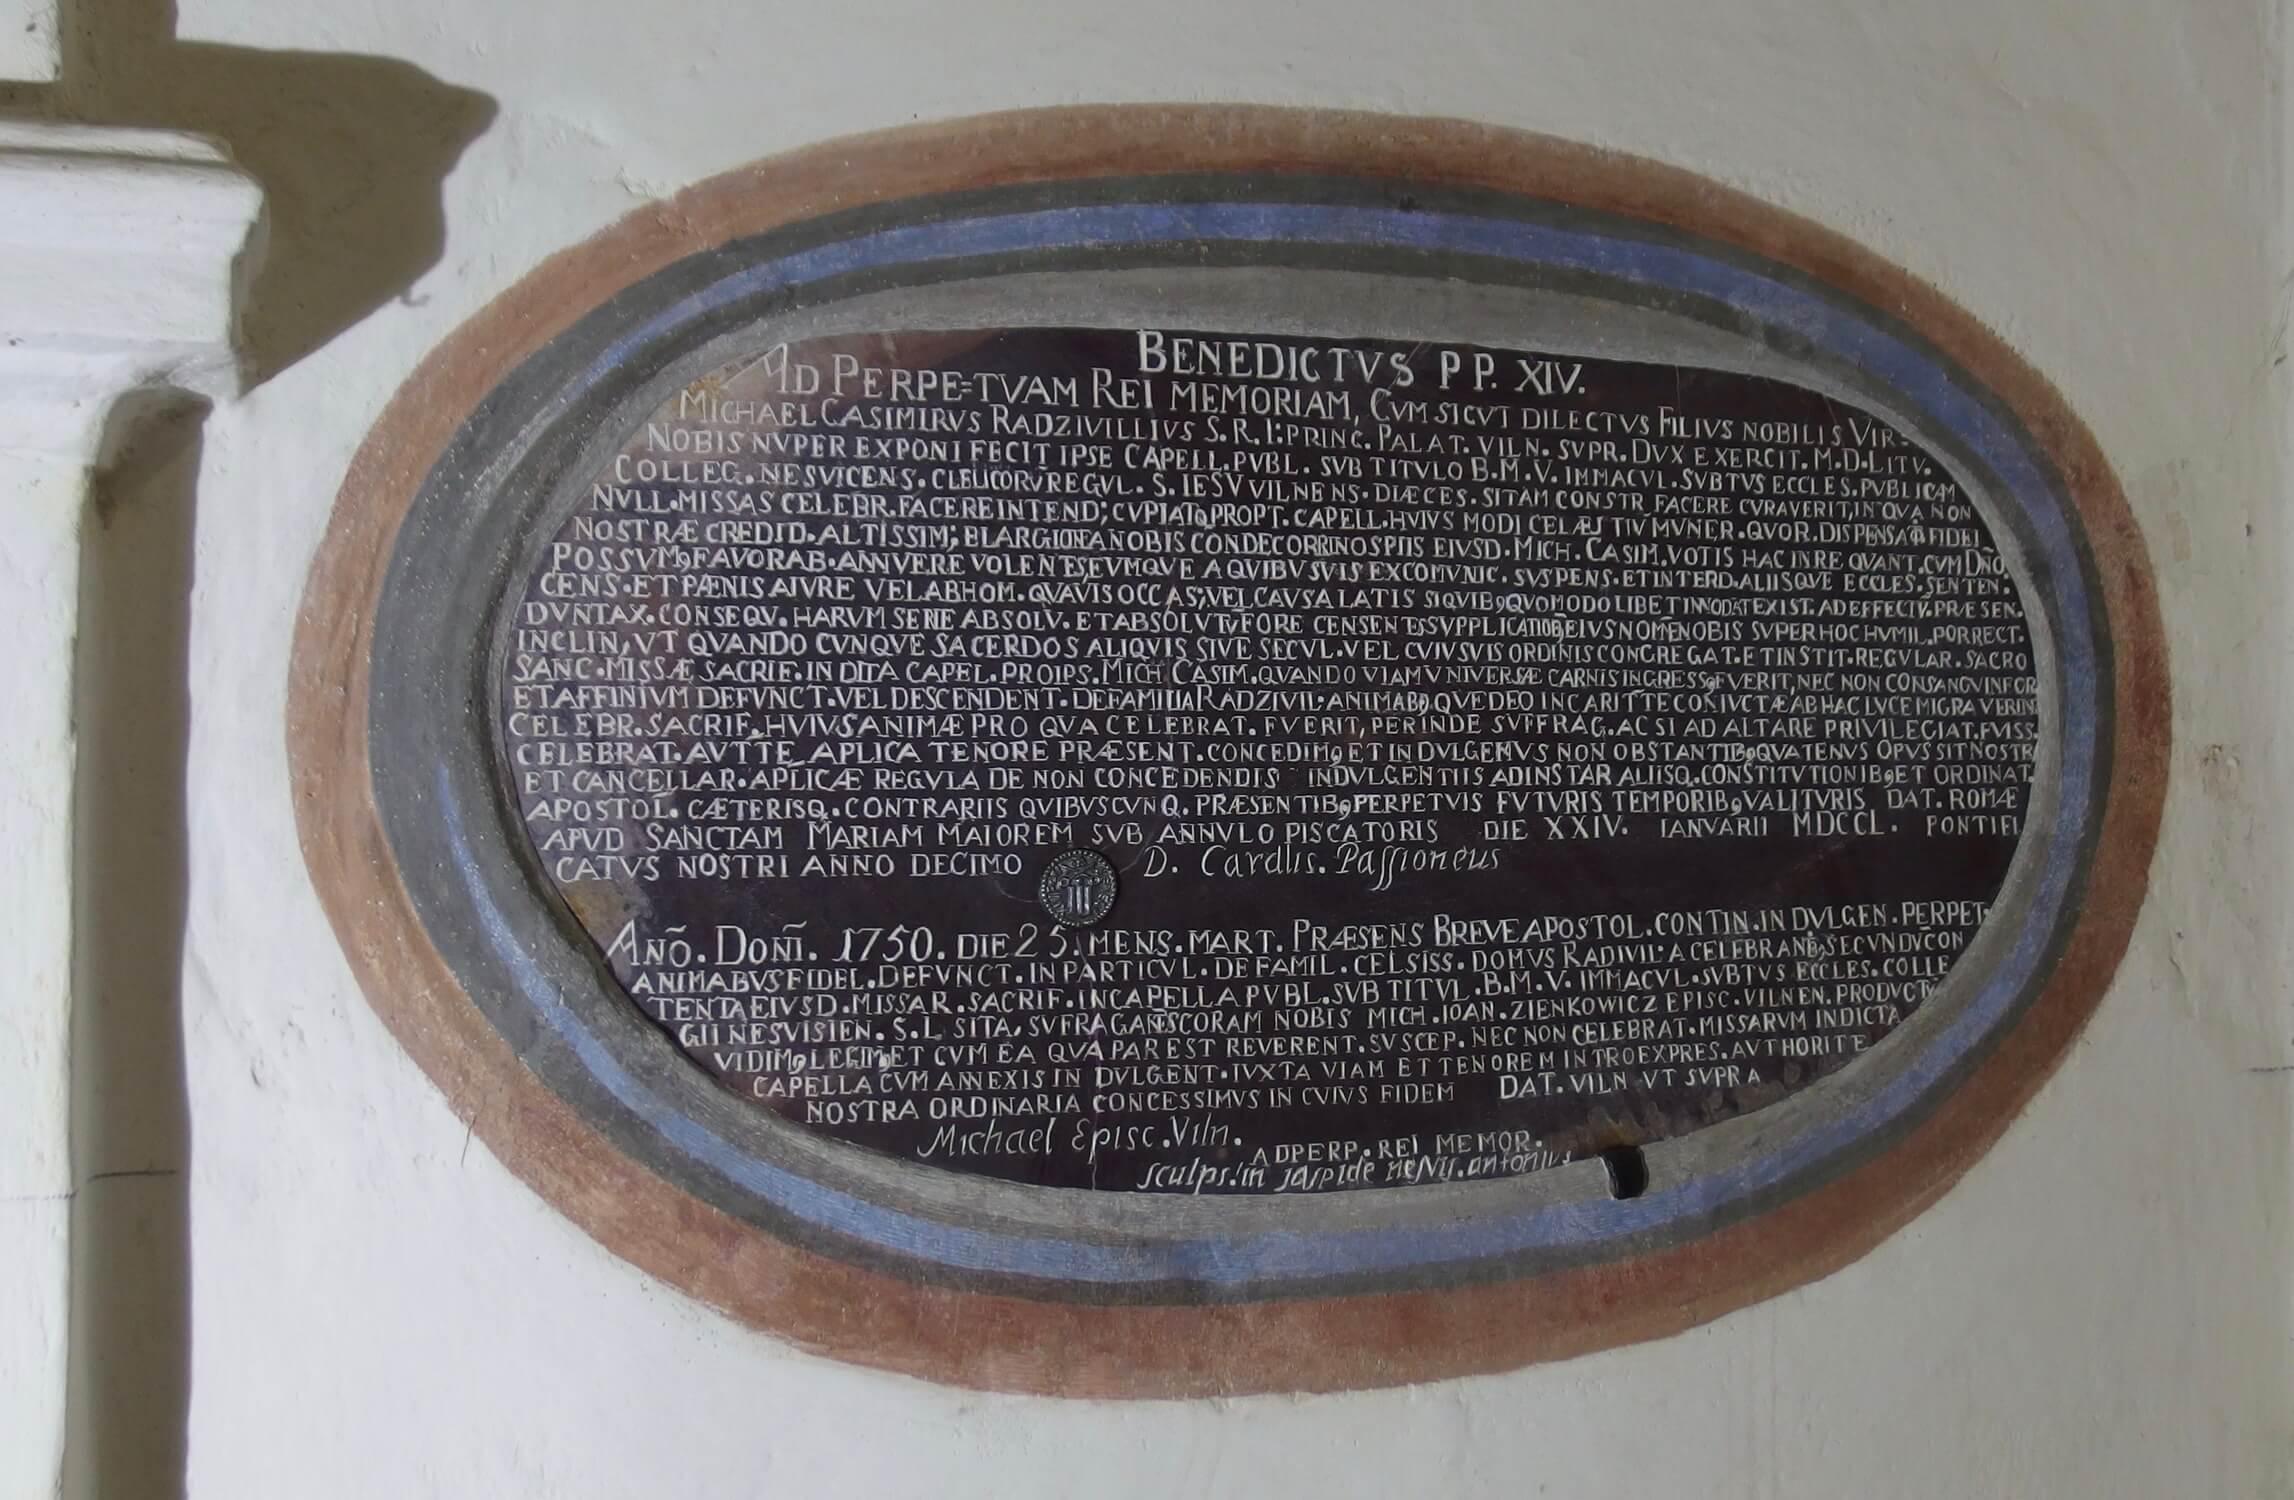 BENEDICTVS PP. XIV.
AD PERPE=TVAM REI MEMORIAM, CVM SICVT DILECTVS FILIVS NOBILIS VIR
MICHAEL CASIMIRVS RADZIVILLIVS S.R.I: PRINC. PALAT. VILN. SVPR. DVX EXERCIT. M.D.LITV.
NOBIS NVPER EXPONI FECIT IPSE CAPELL. PVBL. SVB TITVLO B.M.V. IMMACVL. SVBTVS ECCLES. PVBLICAM
COLLEG. NESVICENS. REGVL. S. IESV VILNENS. DIÆCES. SITAM CONSTR FACERE CVRAVERIT, IN QVA NON
NVLL. MISSAS CELEBR. FACERE INTEND; PROPT. CAPELL. HVIVS MODI MVNER. QVOR. FIDEI
NOSTRÆ CREDID. ALTISSIM; NOBIS EIVSD. MICH. CASIM. VOTIS HAC IN RE QVANT. CVM DÑO
FAVORAB. ANNVERE VOLENTES, EVMQVE A QVIBVSVIS EXCOMVNIC. SVSPENS. ET INTERD. ALIISQVE ECCLES. SENTEN.
CENS. ET PÆNIS A IVRE VEL AB HOM. QVAVIS OCCAS; VEL CAVSA LATIS EXIST. AD EFFECTV. PRÆSEN.
DVNTAX. CONSEQV. HARVM SERIE ABSOLV. ET ABSOLVTV FORE CENSENTES SVPPLICATIOB9 EIVS NOMĒ NOBIS SVPER HOC HVMIL. PORRECT.
INCLIN, VT QVANDO CVNQVE SACERDOS ALIQVIS SIVE SECVL. VEL CVIVSVIS ORDINIS CONGREGAT. ET INSTIT. REGVLAR. SACRO
SANC. MISSÆ SACRIF. IN DITA CAPEL. PRO IPS. MICH. CASIM. QVANDO VIAM VNIVERSÆ CARNIS INGRESS9 FVERIT, NEC NON CONSANGVINEOR
ET AFFINIVM DEFVNCT. VEL DESCENDENT. DE FAMILIA RADZIVIL: ANIMAB9 QVE DEO IN CARITTE CONIVCTÆ AB HAC LVCE MIGRAVERINT
CELEBR. SACRIF. HVIVS ANIMÆ PRO QVA CELEBRAT. FVERIT, PERINDE SVFFRAG. AC SI AD ALTARE PRIVILEGIAT. FVISS.
CELEBRAT. AVTTE APLICA TENORE PRÆSENT. CONCEDIM9 ET INDVLGEMVS NON OBSTANTIB9 QVATENVS OPVS SIT NOSTR
ET CANCELLAR. APLICÆ REGVLA DE NON CONCEDENDIS INDVLGENTIIS AD INSTAR ALIISQ. CONSTITVTIONIB9 ET ORDINAT.
APOSTOL. CÆTERISQ. CONTRARIIS QVIBVSCVNQ. PRÆSENTIB9 PERPETVIS FVTVRIS TEMPORIB9 VALITVRIS DAT. ROMÆ
APVD SANCTAM MARIAM MAIOREM SVB ANNVLO PISCATORIS DIE XXIV. IANVARII MDCCL. PONTIFI
CATVS NOSTRI ANNO DECIMO D. Cardlis. Passioneus
AÑO. DOÑI. 1750. DIE 25. MENS. MART. PRÆSENS BREVE APOSTOL. CONTIN. INDVLGEN. PERPET.
ANIMABVS FIDEL. DEFVNCT. IN PARTICVL. DE FAMIL. CELSISS. DOMVS RADIVIL: A CELEBRANB9 SECVNDV CON
TENTA EIVSD. MISSAR. SACRIF. IN CAPELLA PVBL. SVB TITVL. B.M.V. IMMACVL. SVBTVS ECCLES. COLLE
GII NESVISIEN. S.I. SITA, CORAM NOBIS MICH. IOAN. ZIENKOWICZ EPISC. VILNEN. PRODVCTV
VIDIM9 LEGIM9 ET CVM EA QVA PAR EST REVERENT. SVSCEP. NEC NON CELEBRAT. MISSARVM IN DICTA
CAPELLA CVM ANNEXIS INDVLGENT. IVXTA VIAM ET TENOREM INTRO EXPRES. AVTHORITE
NOSTRA ORDINARIA CONCESSIMVS IN CVIVS FIDEM DAT. VILN VT SVPRA
Michael Episc. Viln.
AD PERP. REI MEMOR.
sculps. in jaspide nesvis. antonius